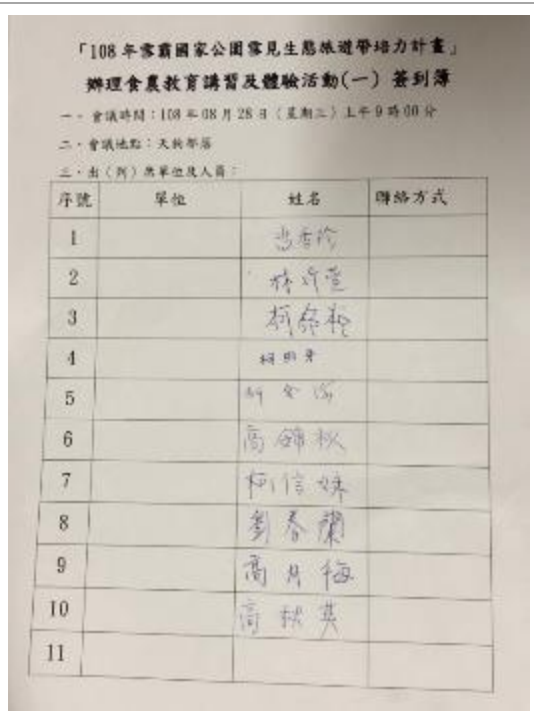 「108年雪霸國家公園雪見生態旅遊帶培力計畫」
辦理食農教育講習及體驗活動(一) 簽到簿
一、會議時間：108年08月28日（星期三）上午9時00分
二、會議地點：天狗部落
三、出（列）席單位及人員：
序號 單位 姓名 聯絡方式
1
2
3
4
5
6 高錦秋
7 柯信妹
8 劉春蘭
9 高月梅
10 高秋英
11